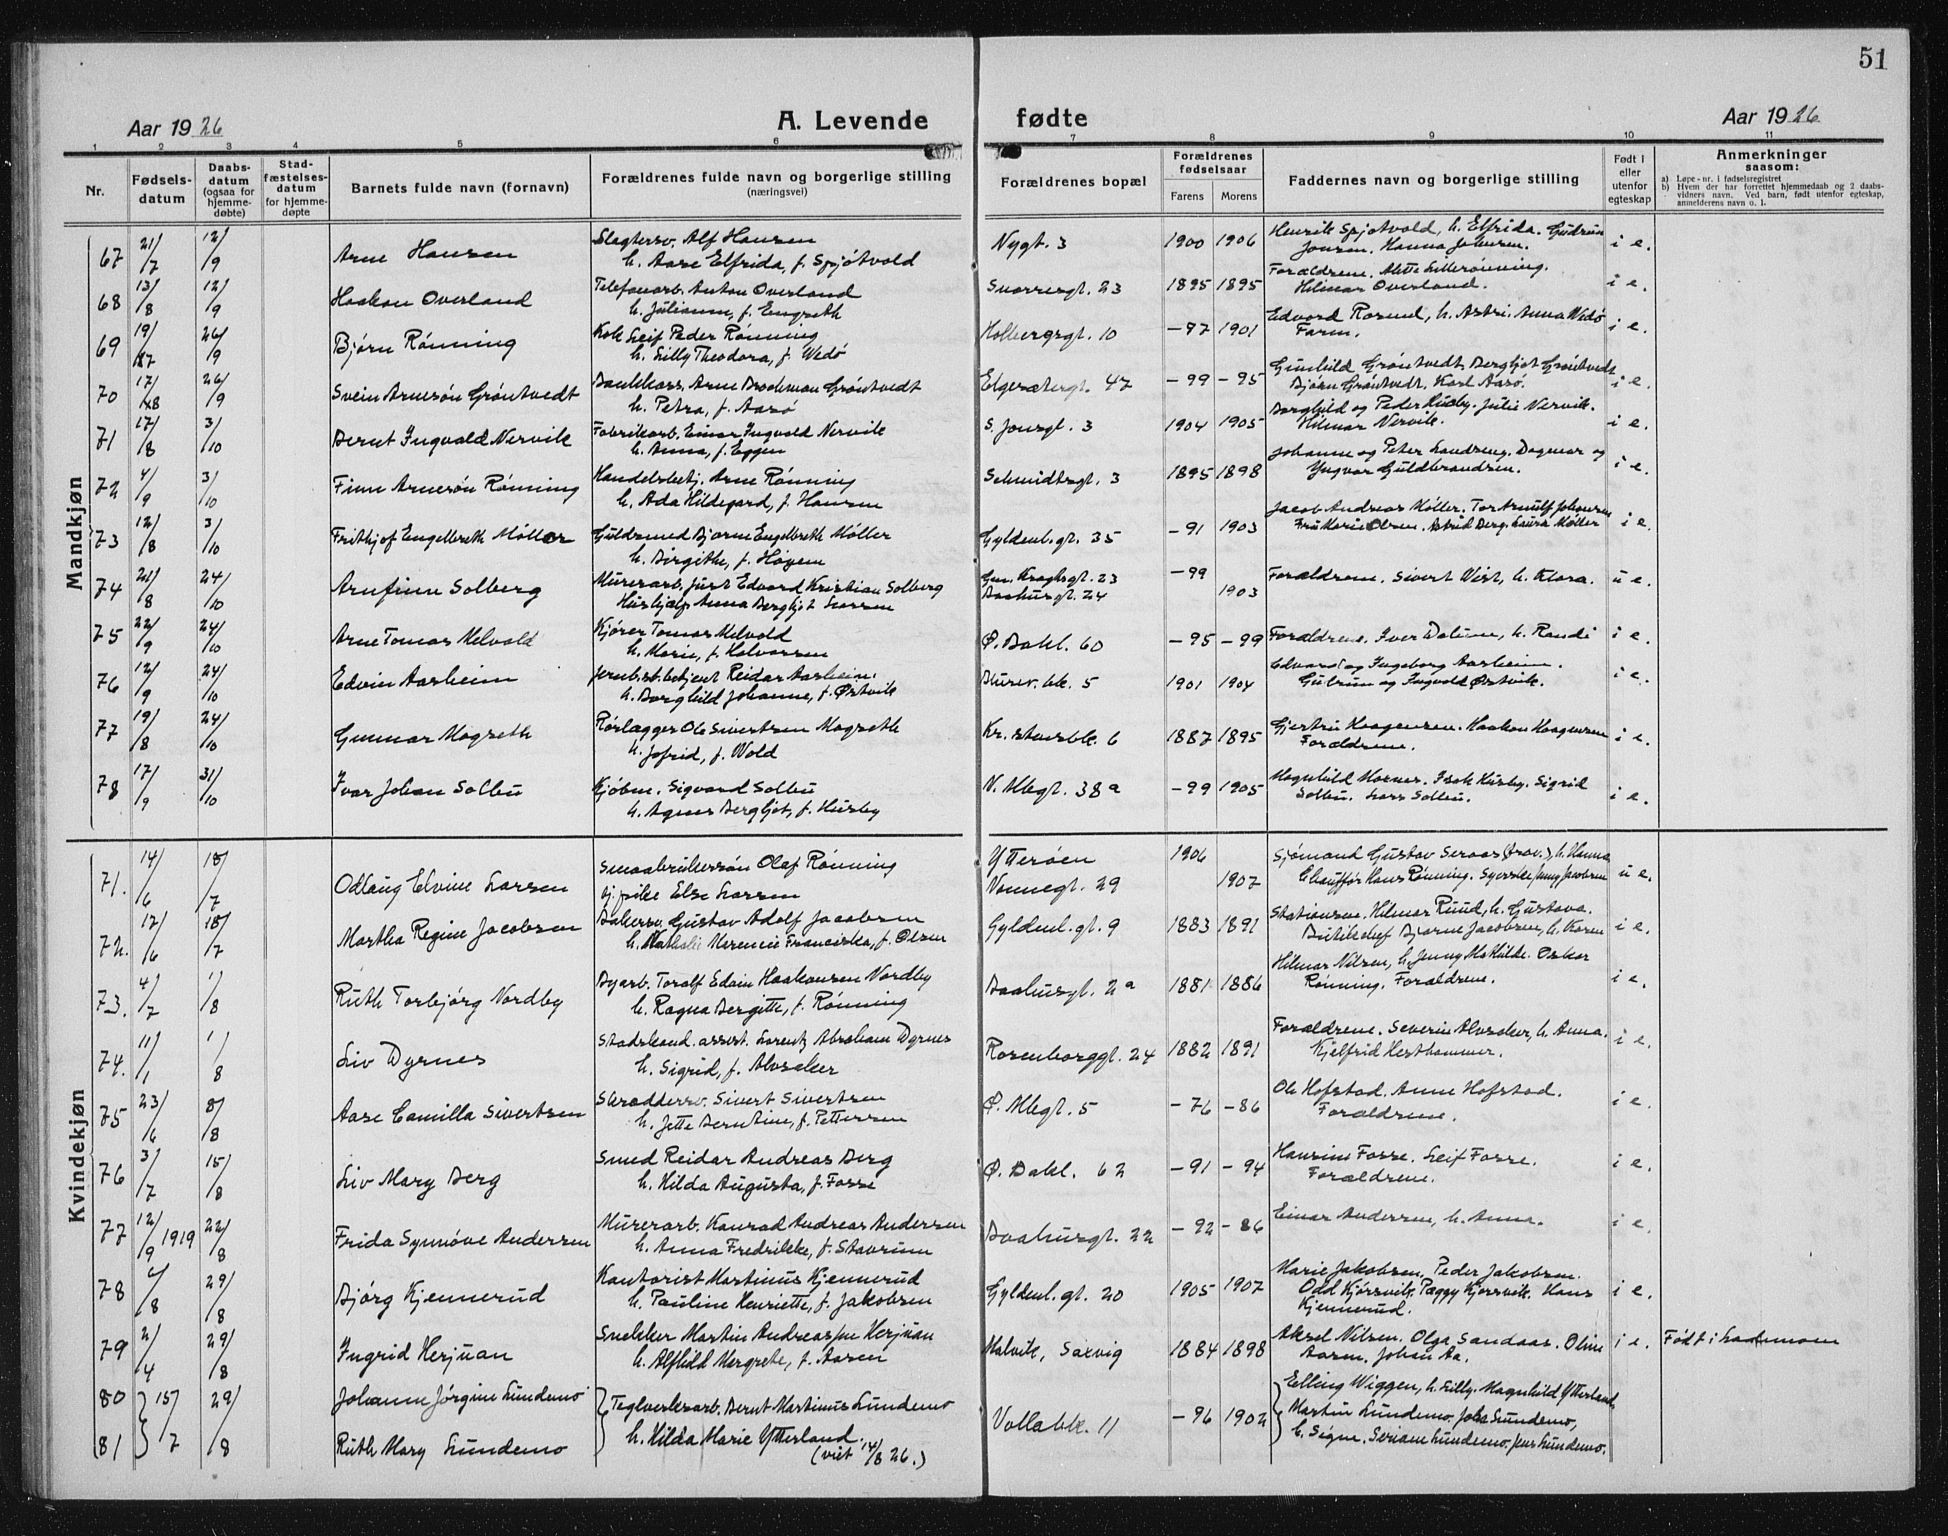 51
Aar 1926
A. Levende fødte
Aar 1926
1 2 3 4 5 6 7 8 9 10 11
Nr.
Fødsels-
datum
Daabs-
datum
(ogsaa for
hjemme-
døbte)
Stad-
fæstelses-
datum
for hjemme-
døpte
Barnets fulde navn (fornavn)
Forældrenes fulde navn og borgerlige stilling
(næringsvei)
Forældrenes bopæl
Forældrenes
fødselsaar
Farens Morens
Faddernes navn og borgerlige stilling
Født i
eller
utenfor
egteskap
Anmerkninger
saasom:
a) Løpe-nr. i fødselsregistret
b) Hvem der har forrettet hjemmedaab og 2 daabs-
vidners navn. Ved barn, født utenfor egteskap,
anmelderens navn o. l.
Mandkjøn
67 21/7 12/9 Arne Hansen
Slagtersv. Alf Hansen
h. Aase Elfrida, f. Spjøtvold
Nygt. 3 1900 1906
Henrik Spjøtvold, h. Elfrida. Gudrun
Jonsen. Hanna Johnsen. i e.
68 13/8 12/9 Haakon Overland
Telefonarb. Anton Overland
h. Julianne, f. Engseth
Sverresgt. 23 1895 1895
Forældrene.
Hilmar Overland. i e.
69 19/7 26/9 Bjørn Rønning
Leif Peder Rønning
h. Lilly Theodora, f. Wedø
Holbergsgt. 10 -97 1901
Edvard h. Astri. Anna Wedø
Faren. i e.
70 17/8 26/9 Svein Arnesøn Grøntvedt
Bankkass. Arne Brodtman Grøntvedt
h. Petra, f. Aasø
Elgesætergt. 47 -99 -95
Gunhild Grøntvedt, Bergljot Grøntvedt
Bjørn Grøntvedt. Karl Aasø. i e.
71 17/8 3/10 Bernt Ingvald Nervik
Fabrikarb. Einar Ingvald Nervik
h. Anna, f. Eggen
S. Jonsgt. 3 1904 1905
Borghild og Peder Husby. Julie Nervik.
Hilmar Nervik. i e.
72 4/9 3/10 Finn Arnesøn Rønning
Handelsbetj. Arne Rønning
h. Ada Hildegard, f. Hansen
Schmidtsgt. 3 1895 1898
Johanne og Peter Landreng. Dagmar og
Yngvar Guldbrandsen. i e.
73 12/8 3/10 Frithjof Engelbreth Møller
Guldsmed Bjarne Engelbreth Møller
h. Birgithe, f. Høyem
Gyldenl. gt. 35 -91 1903
Jacob Andreas Møller. Tor Arnulf Johansen
Fru Marie Olsen. Astrid Berg. Laura Møller i e.
74 21/8 24/10 Arnfinn Solberg
Murerarb. Just Edvard Kristian Solberg
Hushjælp Anna Bergljot Larsen
Gen. Kroghsgt. 23 -99
Baahusgt. 24 1903
Forældrene. Sivert Vist, h. Klara. u e.
75 22/9 24/10 Arne Tomas Melvold
Kjører Tomas Melvold
h. Marie, f. Halvorsen
Ø. Bakl. 60 -95 -99
Forældrene. Iver Dalum, h. Randi i e.
76 12/9 24/10 Edvin Aasheim
Jernb.st.betjent Reidar Aasheim.
h. Borghild Johanne, f. Østvik
Burev. bk. 5 1901 1904
Edvard og Ingeborg Aasheim.
Gudrun og Ingvald Østvik. i e.
77 19/8 24/10 Gunnar Mogseth
Rørlægger Ole Sivertsen Mogseth
h. Jofrid, f. Wold
Kr.stensbk. 6 1887 1895
Gjertru Haagensen. Haakon Haagensen
Forældrene. i e.
78 17/9 31/10 Ivar Johan Solbu
Kjøbm. Sigvard Solbu
h. Agnes Bergljot, f. Husby
N. Mbgt. 38a -99 1905
Magnhild Isak Husby. Sigrid
Solbu. Lars Solbu. i e.
Kvindekjøn
71. 14/6 18/7 Odlaug Elvine Larsen
Smaabrukersøn Olaf Rønning
tj.pike Else Larsen
Ytterøen 1906
Vonnegt. 29 1907
Sjømand Gustav h. Hanna
Chauffør Hans Rønning. Syerske Jenny Jacobsen u e.
72. 12/6 18/7 Martha Regine Jacobsen
Bakersv. Gustav Adolf Jacobsen
h. Nathalie Marencie Franciska, f. Olsen
Gyldenl. gt. 9 1883 1891
Stationsm. Hilmar Ruud, h. Gustava.
Butikchef Bjarne Jacobsen, h. Karen i e.
73. 4/7 1/8 Ruth Torbjørg Nordby
Byarb. Toralf Edvin Haakonsen Nordby
h. Ragna Bergitte, f. Rønning
Baahusgt. 2a 1881 1886
Hilmar Nilsen, h. Jenny Mathilde. Oskar
Rønning. Forældrene. i e.
74. 11/1 1/8 Liv Dyrnes
Stadskond. assist. Lorentz Abraham Dyrnes
h. Sigrid, f. Alvsaker
Rosenborggt. 24 1882 1891
Forældrene. Severin Alvsaker, h. Anna.
Kjelfrid Hesthammer. i e.
75 23/6 8/8 Aase Camilla Sivertsen
Skræddersv. Sivert Sivertsen
h. Jette Berntine, f. Pettersen
Ø. Mbgt. 5 -76 -86
Ole Hofstad. Anne Hofstad.
Forældrene. i e.
76 3/7 15/8 Liv Mary Berg
Smed Reidar Andreas Berg
h. Hilda Augusta, f. Fosse
Ø. Bakl. 62 -91 -94
Hansine Fosse. Leif Fosse.
Forældrene. i e.
77 12/9 1919 22/8 Frida Synnøve Andersen
Murerarb. Konrad Andreas Andersen
h. Anna Fredrikke, f. Stavrum
Baahusgt. 22 -92 -86
Einar Andersen, h. Anna. i e.
78 /8 29/8 Bjørg Kjennerud
Kontorist Martinus Kjennerud
h. Pauline Henriette, f. Jakobsen
Gyldenl. gt. 20 1905 1907
Marie Jakobsen. Peder Jakobsen.
Odd Kjørsvik. Peggy Kjørsvik. Hans
Kjennerud. i e.
79 2/4 29/8 Ingrid Herjuan
Snekker Martin Andreas Herjuan
h. Alfhild Margrete, f. Aasen
Malvik, Saxvig 1884 1898
Aksel Nilsen. Olga Sandaas. Oline
Aasen. Johan Aa. i e. Født i Lademoen
80 15/7 29/8 Johanne Jørgine Lundemo
81 Ruth Mary Lundemo
Teglverksarb. Bernt Martinus Lundemo
h. Hilda Marie Ytterland.
(viet 14/8 26.)
Vollabk. 11 -96 1902
Elling Wiggen, h. Lilly. Magnhild Ytterland
Martin Lundemo. Johs Lundemo,
h. Signe. Lundemo. Jens Lundemo.